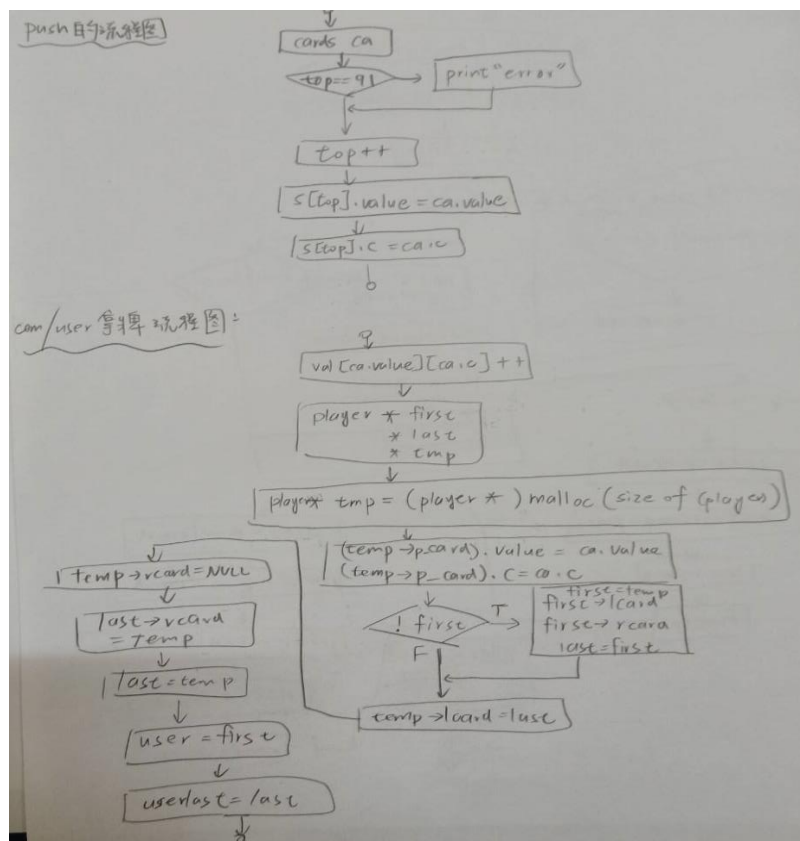 push的流程图
cards ca
top==91
print"error"
top++
s[top].value=ca.value
s[top].c=ca.c
com/user拿牌流程图:
val[ca.value][ca.c]++
player * first
* last
* tmp
player* tmp=(player *)malloc(size of(player)
(temp→p_card).value = ca.value
(temp→p_card).c=ca.c
! first
T
F
first=temp
first→lcard
first→rcard
last=first
temp→lcard=last
temp→rcard=NULL
last→rcard
=temp
last=temp
user=first
userlast=last